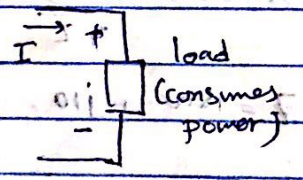 I
+
load
(consumes
power)
-